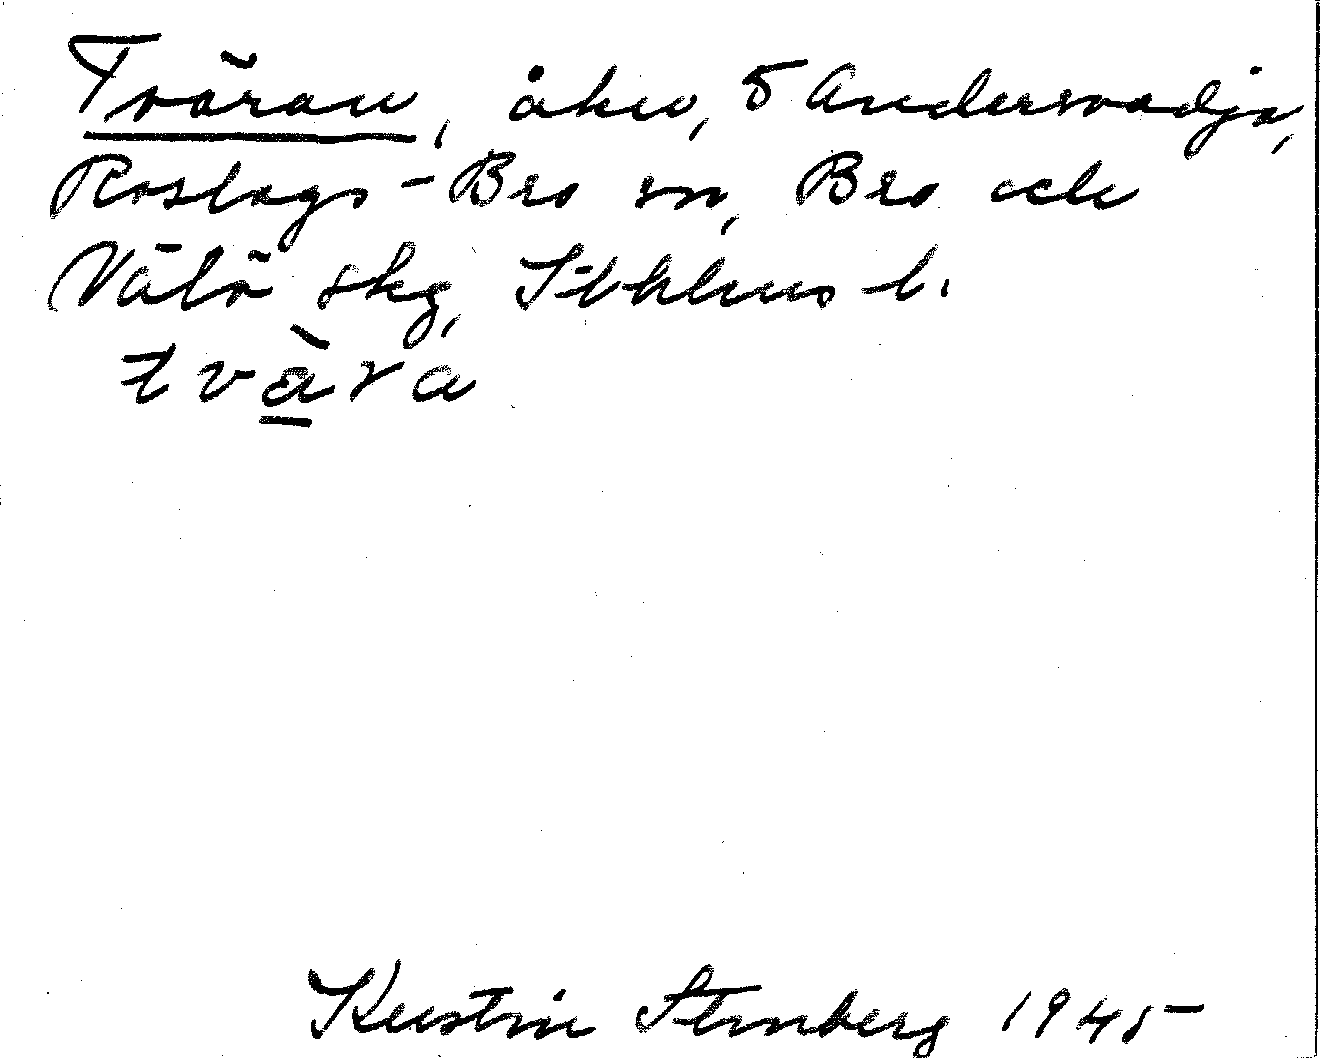 Tväran, åker, 5 Andersvadja,
Roslags-Bro sn, Bro och
Vätö skg, Sthlms l.
tvä̀ra
Kerstin Sternberg 1945